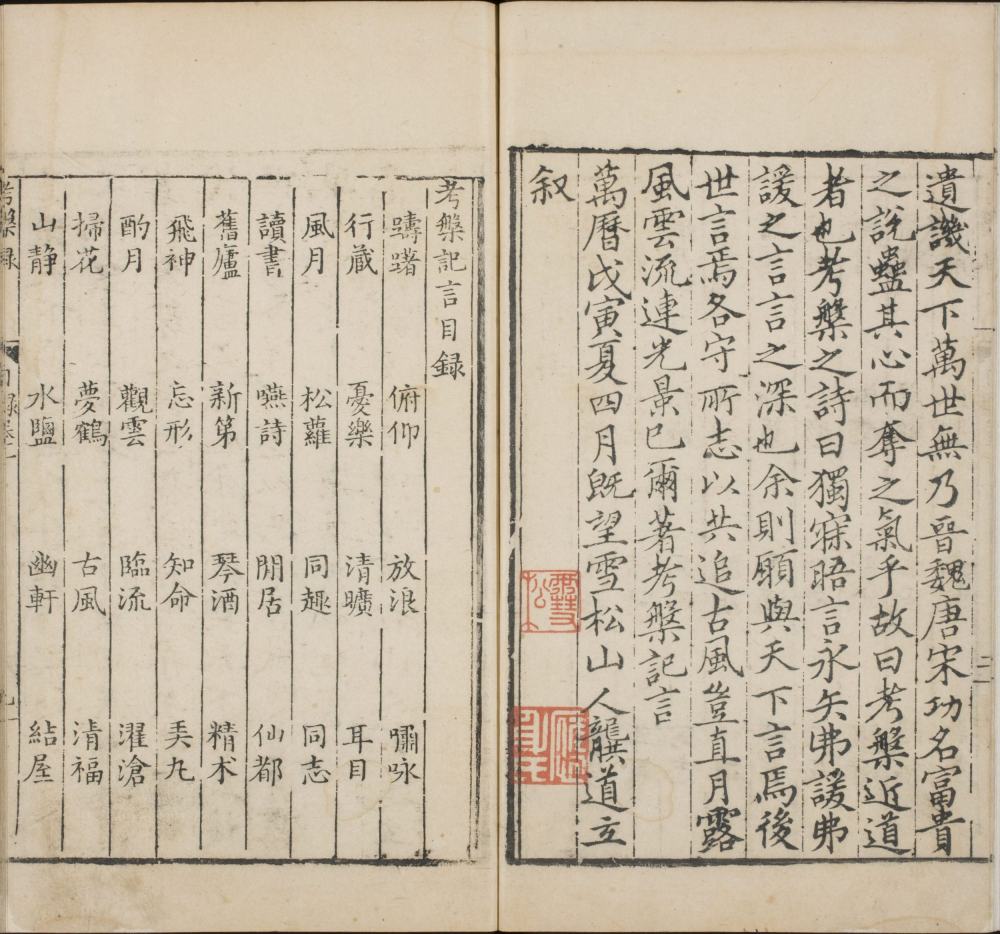 遺譏天下萬世無乃晉魏唐宋功名富貴
之說蠱其心而奪之氣乎故曰考槃近道
者也考槃之詩曰獨寐晤言永矢弗諼弗
諼之言言之深也余則願與天下言焉後
世言焉各守所志以共追古風豈直月露
風雲流連光景已爾著考槃記言
萬曆戊寅夏四月旣望雪松山人龔道立
叙
考槃記言目録
躊躇 俯仰 放浪 嘯咏
行藏 憂樂 清曠 耳目
風月 松蘿 同趣 同志
讀書 嚥詩 閒居 仙都
舊廬 新第 琴酒 精术
飛神 忘形 知命 美九
酌月 觀雲 臨流 濯滄
掃花 夢鶴 古風 清福
山静 水鹽 幽軒 結屋
考槃録